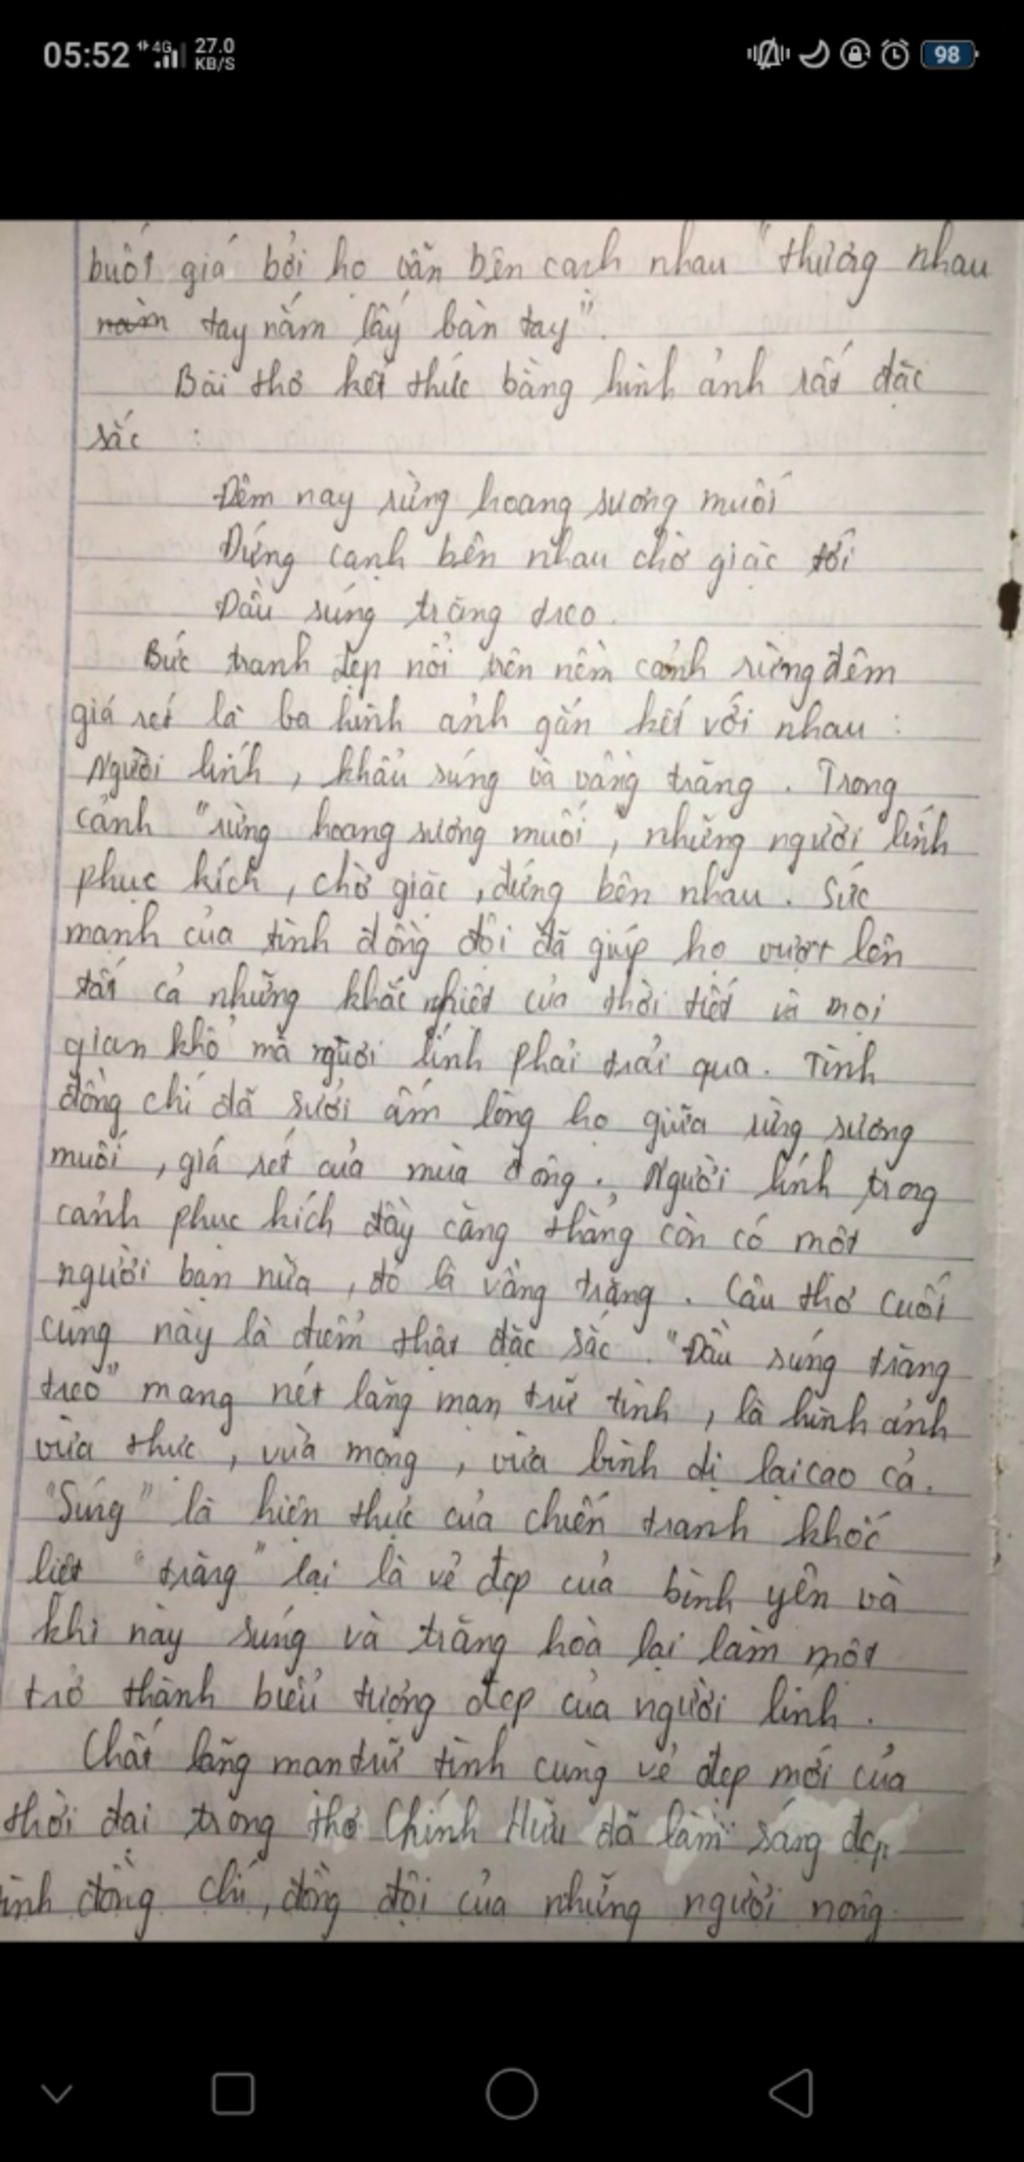 05:52 4G 27.0 KB/S 98
buốt giá bởi họ vẫn bên cạnh nhau "thương nhau
nắm tay nắm lấy bàn tay".
Bài thơ kết thúc bằng hình ảnh rất đặc
sắc :
Đêm nay rừng hoang sương muối
Đứng cạnh bên nhau chờ giặc tới
Đầu súng trăng treo.
Bức tranh đẹp nổi trên nềm cảnh rừng đêm
giá rét là ba hình ảnh gắn kết với nhau :
Người lính, khẩu súng và vầng trăng. Trong
cảnh "rừng hoang sương muối, những người lính
phục kích, chờ giặc, đứng bên nhau. Sức
mạnh của tình đồng đội đã giúp họ vượt lên
tất cả những khắc nhiệt của thời tiết và mọi
gian khổ mà người lính phải trải qua. Tình
đồng chí đã sưởi ấm lòng họ giữa rừng sương
muối, giá rét của mùa đông. Người lính trong
cảnh phục kích đầy căng thẳng còn có một
người bạn nữa, đó là vầng trăng. Câu thơ cuối
cùng này là điểm thật đặc sắc. "Đầu súng trăng
treo" mang nét lãng mạn trữ tình, là hình ảnh
vừa thực, vừa mộng, vừa bình dị lại cao cả.
"Súng" là hiện thực của chiến tranh khốc
liệt "trăng" lại là vẻ đẹp của bình yên và
khi này súng và trăng hoà lại làm một
trở thành biểu tượng đẹp của người lính.
Chất lãng mạn trữ tình cùng vẻ đẹp mới của
thời đại trong thơ Chính Hữu đã làm sáng đẹp
tình đồng chí, đồng đội của những người nông